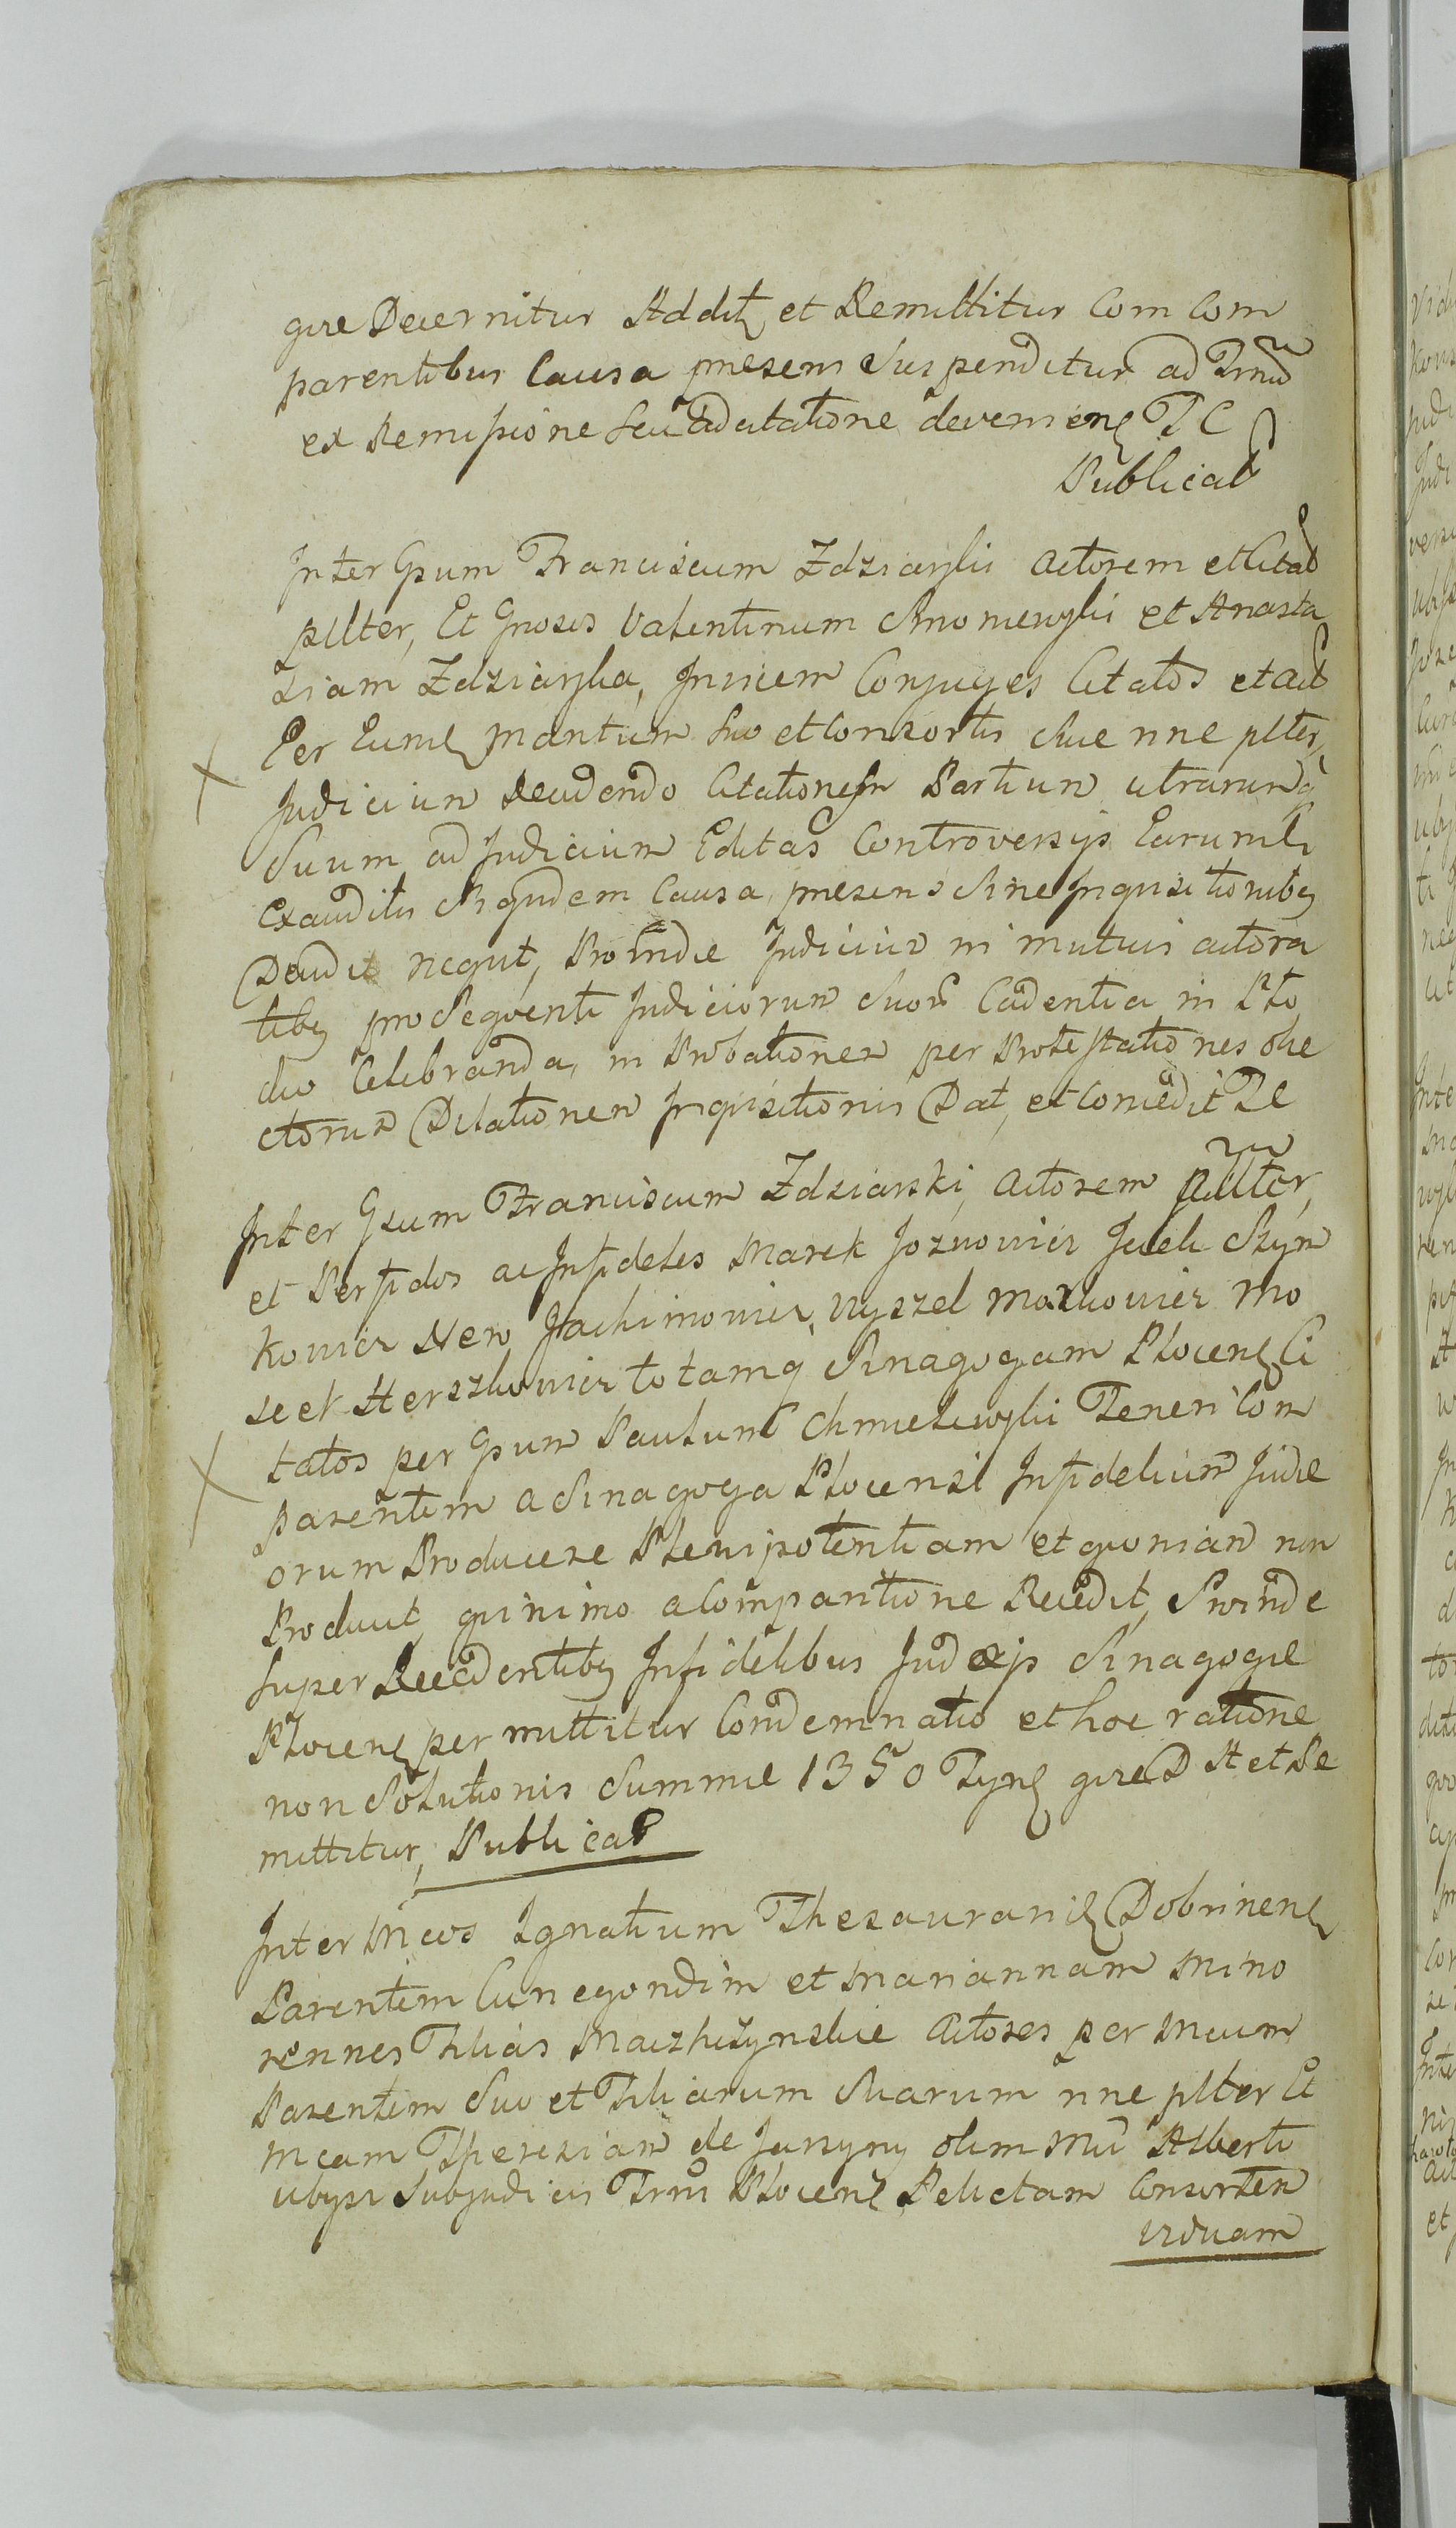 gre Decernitur Addit et Remittitur Com Com
parentibus Causa presens Suspenditur ad Trnu
ex Remissione seu adcitatione deveniens T C
Publicat
Inter Gsum Franciscum Zdziarski Actorem et Citat
pllter, Et Gnosos Valentinum et Anasta
siam Zdziarska, Invicem Conjuges Citatos et act
Per Eund Maritum Suo et Consortis Sue nne plter,
Judicium Citationem Partium utrarumq
Suum ad Judicium Editas Controversijs Earund
Exauditis Siquidem Causa presens Sine Inquisitionibq
Decidi nequit, Proinde Judicium in mutuis actora
tibq pro Sequenti Judiciorum Suor Cadentia in Plo
cko Celebranda, in Probationem per Protestationes obe
ctorum Dilationem Inquisitionis Dat, et Concedit Te
Inter Gsum Franciscum Zdziarski, Actorem pllter,
et Perfidos ac Infideles Marek Jozwowicz Szym
kowicz Jachimowicz, Wyszel Mo
sek Herszkowicz totamq Sinagogam Plocens Ci
tatos per Gsum Paulum Chmielewski Teneri Com
parentem a Sinagoga Plocensi Infidelium Jude
orum Producere Plenipotentiam et quoniam non
Producit, quinimo a Comparitione Recedit, Proinde
super Recedentibq Infidelibus Judeijs Sinagoge
Plocens permittitur Condemnatio et hoc ratione
non Solutionis Summe 1350 Tyns gre D A et Re
mittitur, Publicat
Inter Mcos Ignatium Thesaurarid Dobrinens
Parentem Cunegondim et Mariannam Mino
rennes Filias Actores per Mcum
Parentem Suo et Filiarum Suarum nne plter Et
Mcam Theresiam de olim Mci Alberti
Subjudicis Trrni Plocens Relictam Consortem
viduam